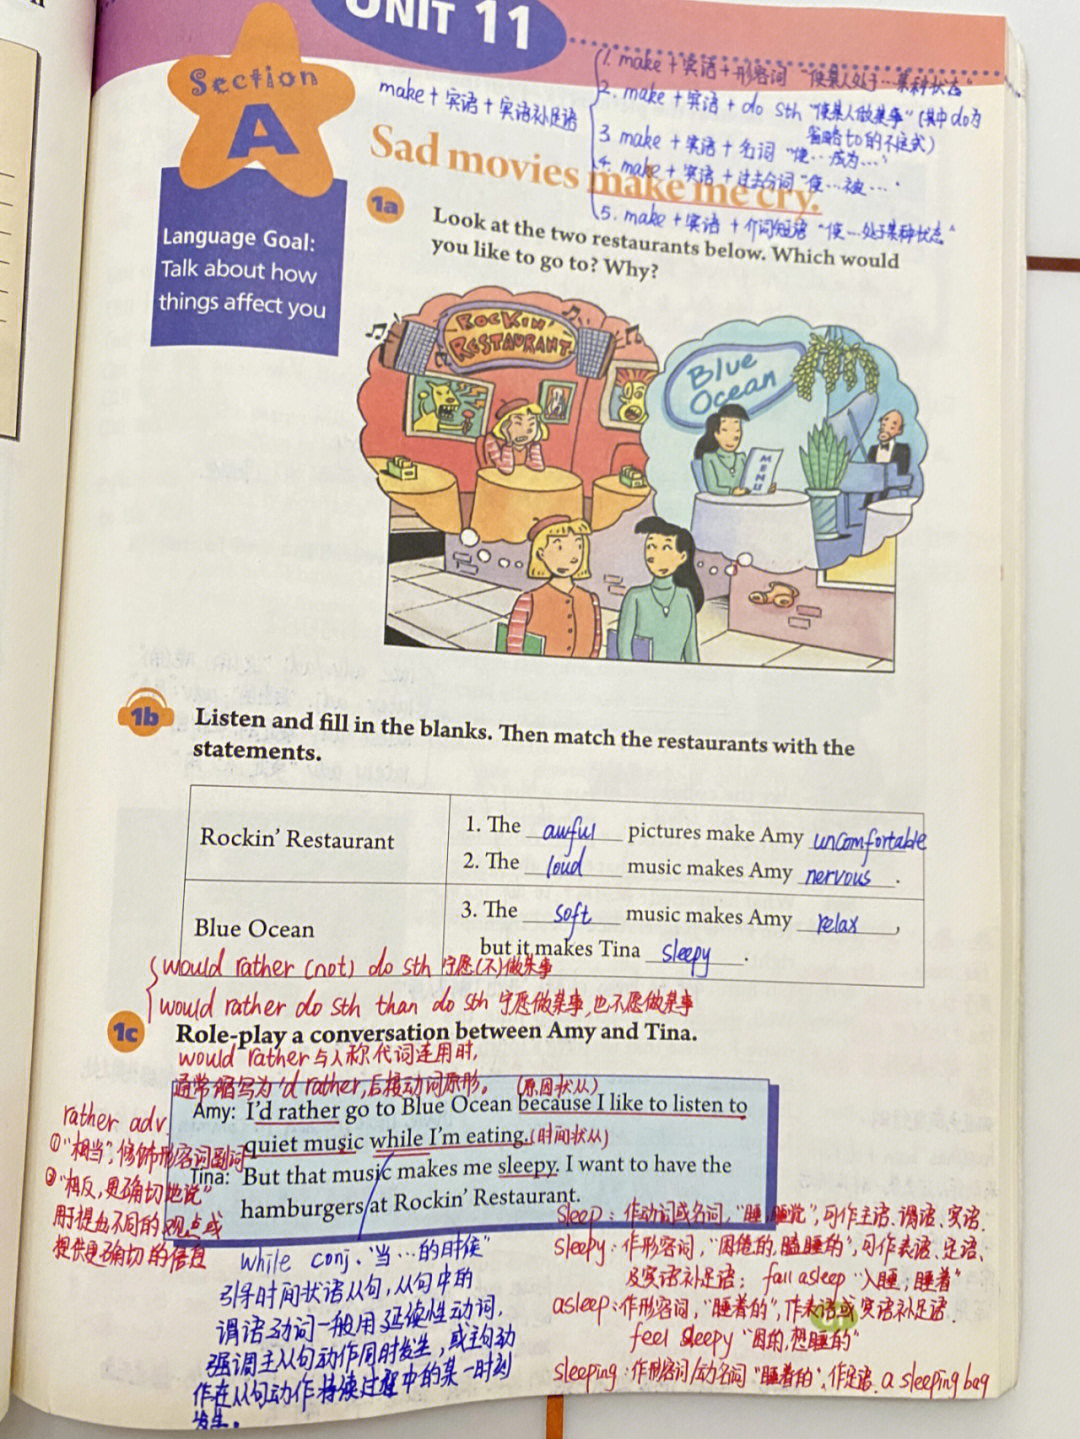 UNIT 11
Section
A
Language Goal:
Talk about how
things affect you
make+宾语+宾语补足语
1. make+宾语+形容词 "使某人处于…某种状态"
2. make+宾语+do sth "使某人做某事"(其中do为
省略to的不定式)
3 make+宾语+名词 "使…成为…"
4. make+宾语+过去分词 "使…被…"
5. make+宾语+介词短语 "使…处于某种状态"
Sad movies make me cry.
1a
Look at the two restaurants below. Which would
you like to go to? Why?
ROCKIN'
RESTAURANT
Blue
Ocean
MENU
1b
Listen and fill in the blanks. Then match the restaurants with the
statements.
Rockin' Restaurant
1. The awful pictures make Amy uncomfortable
2. The loud music makes Amy nervous.
Blue Ocean
3. The soft music makes Amy relax,
but it makes Tina sleepy.
would rather (not) do sth 宁愿(不)做某事
would rather do sth than do sth 宁愿做某事,也不愿做某事
1c
Role-play a conversation between Amy and Tina.
would rather与人称代词连用时,
通常缩写为'd rather,后接动词原形。 (原因状从)
Amy: I'd rather go to Blue Ocean because I like to listen to
quiet music while I'm eating.(时间状从)
Tina: But that music makes me sleepy. I want to have the
hamburgers at Rockin' Restaurant.
rather adv.
①"相当",修饰形容词副词
②"相反,更确切地说"
用于提出不同的观点或
提供更确切的信息
while conj. "当…的时候"
引导时间状语从句,从句中的
谓语动词一般用延续性动词,
强调主从句动作同时发生,或主句动
作在从句动作持续过程中的某一时刻
发生。
sleep:作动词或名词,"睡,睡觉",可作主语、谓语、宾语.
sleepy:作形容词,"困倦的,瞌睡的",可作表语、定语、
及宾语补足语; fall asleep "入睡;睡着"
asleep:作形容词,"睡着的",作表语或宾语补足语.
feel sleepy "困的,想睡的"
sleeping:作形容词/动名词 "睡着的",作定语. a sleeping bag